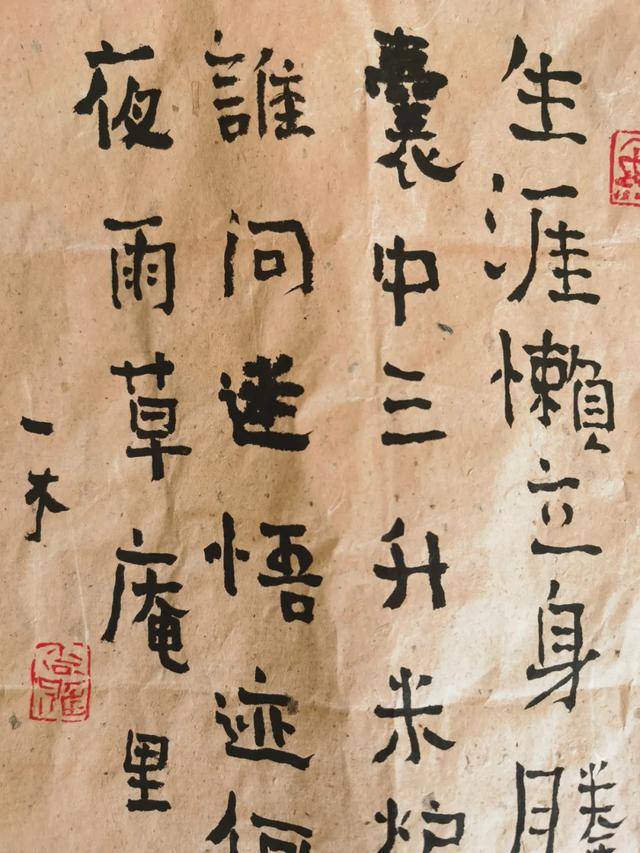 生涯懶立身
囊中三升米炉
誰問迷悟迹何
夜雨草庵里
一木